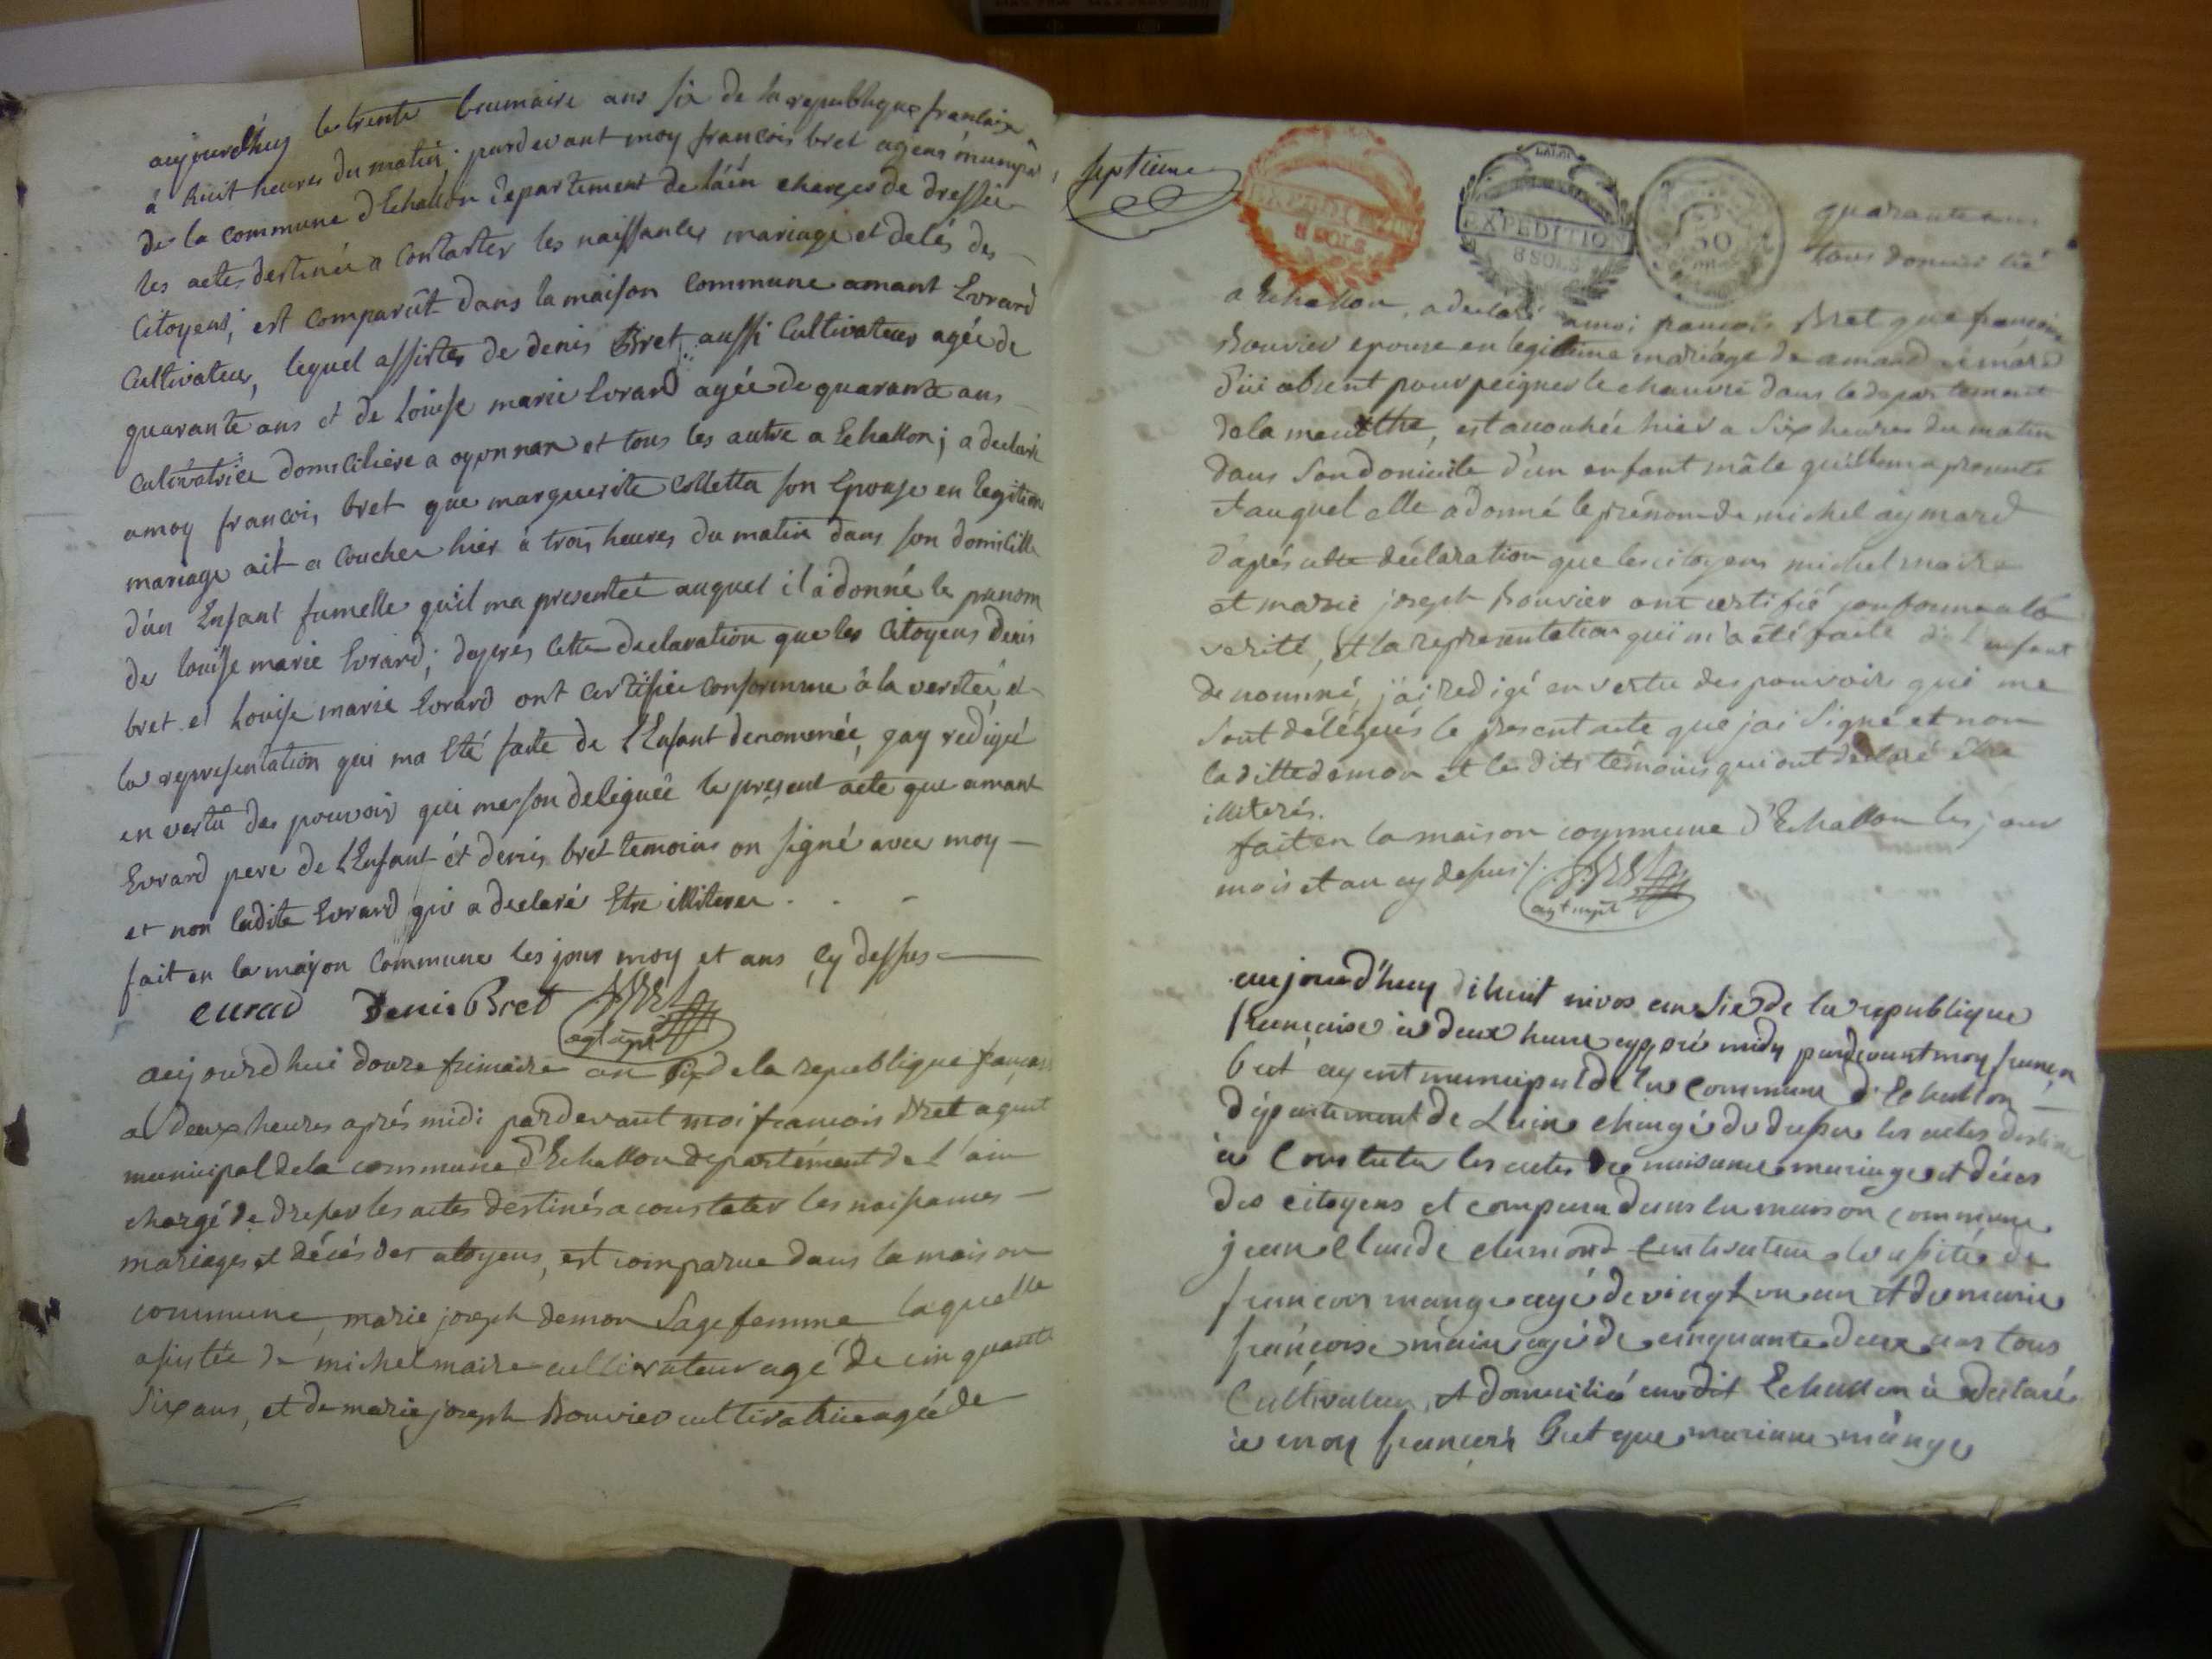 aujourdhuy le trente brumaire ans six de la republique francaise
à huit heures du matin; pardevant moy francois bret agens municipal
de la commune d Echallon departement de láin charger de dresser
les actes destinée a constaster les naissances mariage et decés des
Citoyens, est comparût dans la maison Commune amant Evrard
Cultivateur, lequel assister de denis Bret aussi Cultivateur agée de
quarante ans et de louise marie Evrard agée de quarante ans
cultivatrice domiciliere a oyonnax et tous les autre a Echallon; a declaré
amoy francois bret que marguerite Colletta son Epouse en legitime
mariage ait a coucher hier à trois heures du matin dans son domicille
d'un Enfant fumelle qu'il ma presentée auquel il a donné le prenom
de louisse marie Evrard; dapres cette declaration que les Citoyens denis
bret et Louise marie Evrard ont certifiée conformme à la veritée et
la representation qui ma Eté faite de l'Enfant denommée, gay redigé
en vertu des pouvoir qui me son deleguée le present acte que amant
Evrard pere de l'Enfant et denis bret temoins on signé avec moy
et non ladite Evrard qui a declaré Etre illiteree
fait en la maison Commune les jour moy et ans cy dessus
eurad Denis Bret
agt
aujourdhui douze frimaire an six de la republique francaise
a deux heures aprés midi pardevant moi francois Bret agent
municipal de la commune d'Echallon departément de l'ain
chargé de dresser les actes destinés a constater les naissances
mariages et décés des citoyens, est comparue dans la maison
commune, marie joseph demon sage femme laquelle
assistée de michel maire cultivateur agé de cinquante
six ans, et de marie joseph Bouvier cultivatrice agée de
septieme
EXPEDITION
8 SOLS
EXPEDITION
8 SOLS
50
quarante ans
tous domicilié
a Echallon, a declaré a moi francois Bret que francoise
Bouvier epouse en légitime mariage de amand
absent pour peigner le chanvre dans le departement
de la meurthe, est accouchée hier a six heures du matin
dans son domicile d'un enfant mâle qu'elle ma presenté
et auquel elle a donné le prénom de michel aymard
d'aprés cette déclaration que les citoyens michel maire
et marie joseph Bouvier ont certifié conforme a la
verité, et la representation qui m'a été faite de l'enfant
denommé, j'ai redigé en vertu des pouvoirs qui me
sont délégués le present acte que jai signé et non
la ditte démon et les dits témoins qui ont declaré etre
illiterés.
fait en la maison commune d'Echallon les jour
mois et an cy dessus
agt mpl
aujourd'huy dihuit nivos an sie de la republique
francaise à deux heure appré midy pardevant moy francois
bret agent municipal de la commune d'Echallon
département de Lain chargé de dresser les actes destiné
à Constater les actes de naisance mariage et décés
des citoyens et comparu dans la maison commune
jean claude Cultivateur assité de
francois mange agé de vingt un an et de marie
francoise maire agé de cinquante deux ans tous
Cultivateur, et domicilié audit Echallon à declaré
à moy francois bret que mariane mange